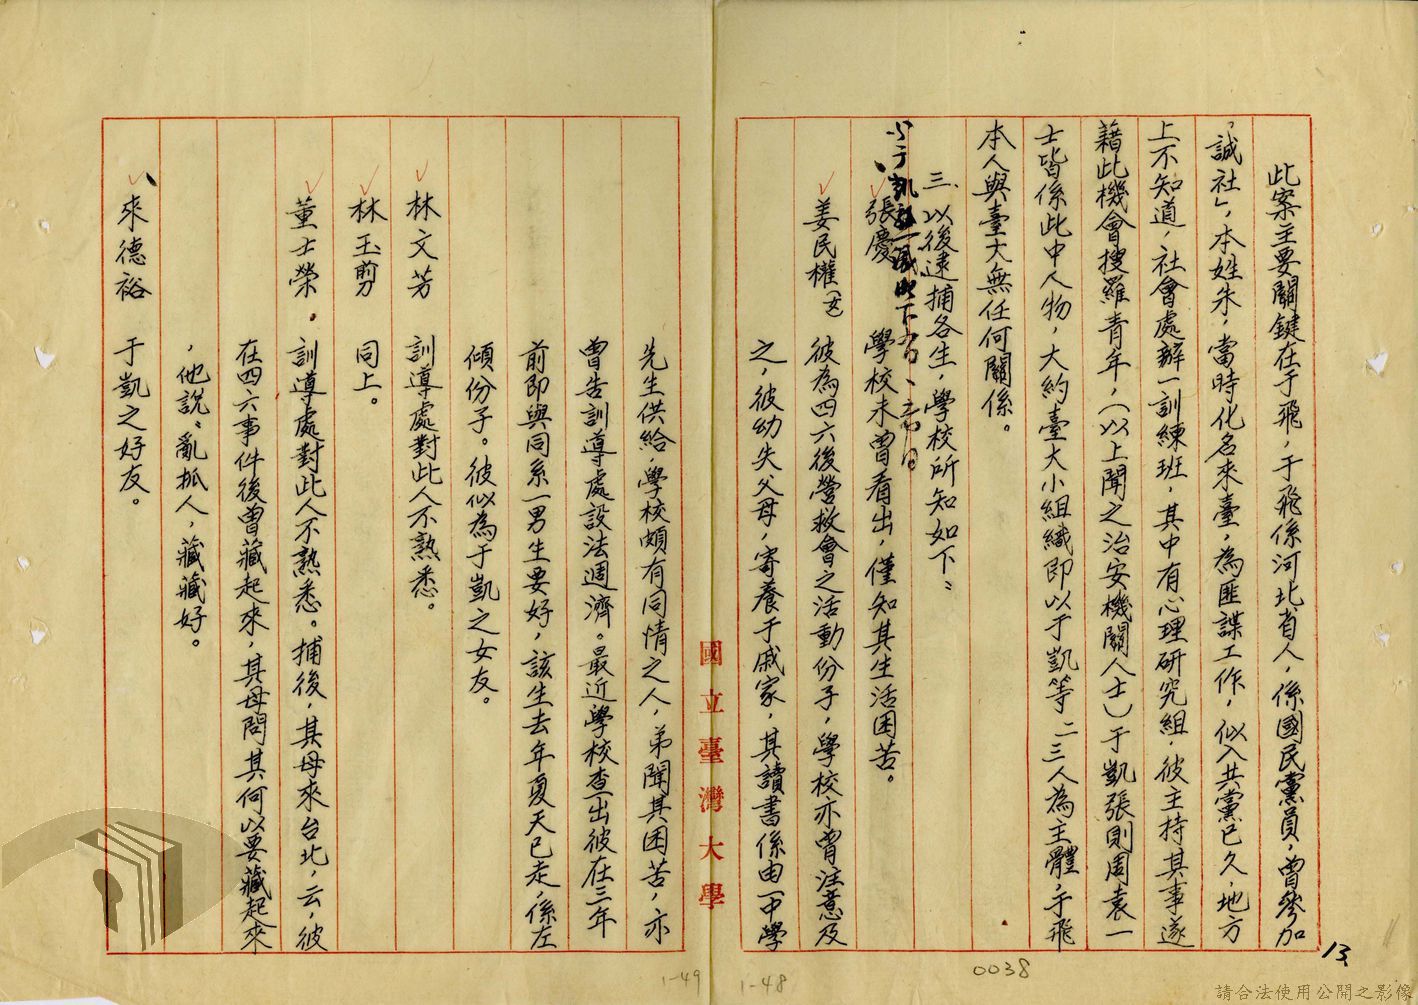 此案主要關鍵在于飛，于飛係河北省人，係國民黨員，曾參加
「誠社」，本姓朱，當時化名來臺，為匪諜工作，似入共黨已久，地方
上不知道，社會處辦一訓練班，其中有心理研究組，彼主持其事遂
藉此機會搜羅青年，（以上聞之治安機關人士）于凱張則周袁一
士皆係此中人物，大約臺大小組織即以于凱等二三人為主體，于飛
本人與臺大無任何關係。
三、以後逮捕各生，學校所知如下：
張慶 學校未曾看出，僅知其生活困苦。
姜民權 彼為四六後營救會之活動份子，學校亦曾注意及
之，彼幼失父母，寄養于戚家，其讀書係由一中學
國立臺灣大學
先生供給，學校頗有同情之人，弟聞其困苦，亦
曾告訓導處設法週濟。最近學校查出彼在三年
前即與同系一男生要好，該生去年夏天已走，係左
傾份子。彼似為于凱之女友。
林文芳 訓導處對此人不熟悉。
林玉剪 同上。
董士榮 訓導處對此人不熟悉。捕後，其母來台北，云，彼
在四六事件後曾藏起來，其母問其何以要藏起來
，他說“亂抓人，藏藏好。
來德裕 于凱之好友。
13
0038
1-48
1-49
請合法使用公開之影像